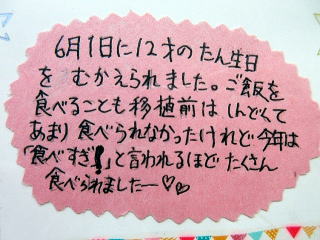 6月1日に12才のたん生日
を むかえられました。ご飯を
食べることも移植前はしんどくて
あまり食べられなかったけれど今年は
「食べすぎ!」と言われるほど たくさん
食べられましたー♡♡